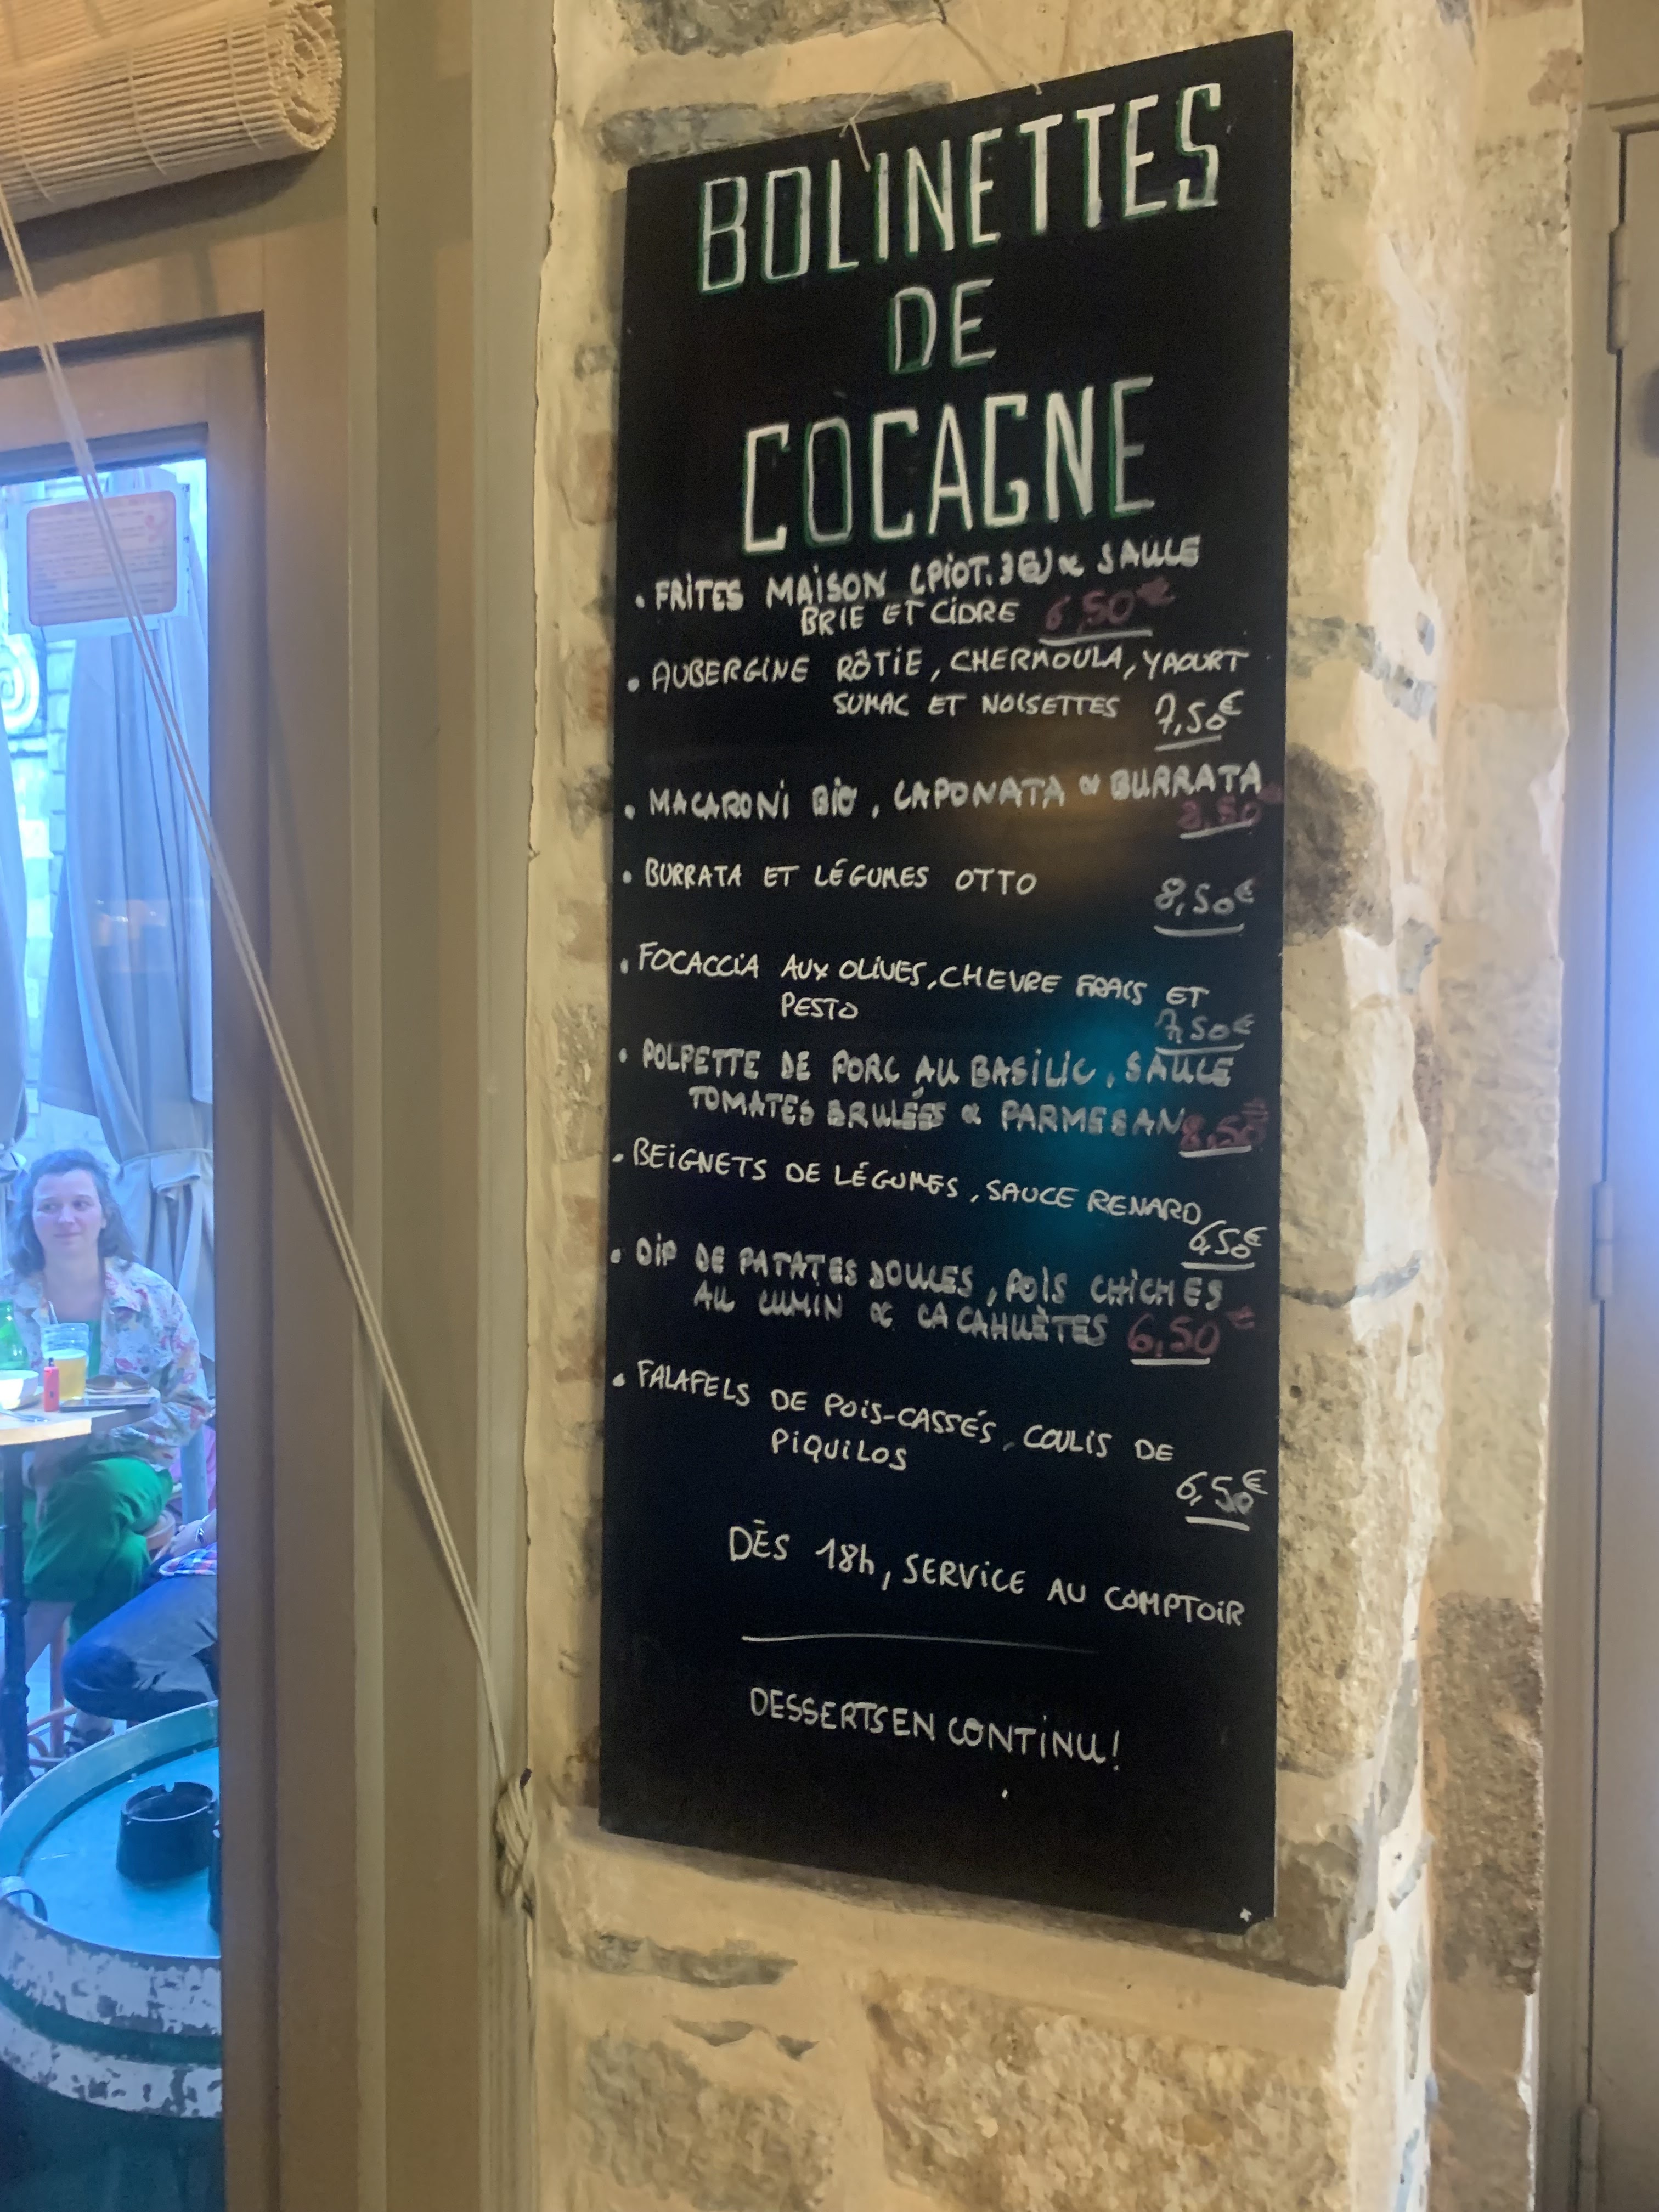 BOLINETTES
DE
COCAGNE
• FRITES MAISON (PIOT. 36) & SAUCE
BRIE ET CIDRE 6,50€
• AUBERGINE RÔTIE, CHERMOULA, YAOURT
SUMAC ET NOISETTES 7,50€
• MACARONI BIO, CAPONATA & BURRATA
8,50€
• BURRATA ET LÉGUMES OTTO 8,50€
• FOCACCIA AUX OLIVES, CHEVRE FRAIS ET
PESTO 7,50€
• POLPETTE DE PORC AU BASILIC, SAUCE
TOMATES BRULÉES & PARMESAN 8,50€
• BEIGNETS DE LÉGUMES, SAUCE RENARD
6,50€
• DIP DE PATATES DOUCES, POIS CHICHES
AU CUMIN & CACAHUÈTES 6,50€
• FALAFELS DE POIS-CASSÉS, COULIS DE
PIQUILOS 6,50€
DÈS 18h, SERVICE AU COMPTOIR
DESSERTS EN CONTINU!